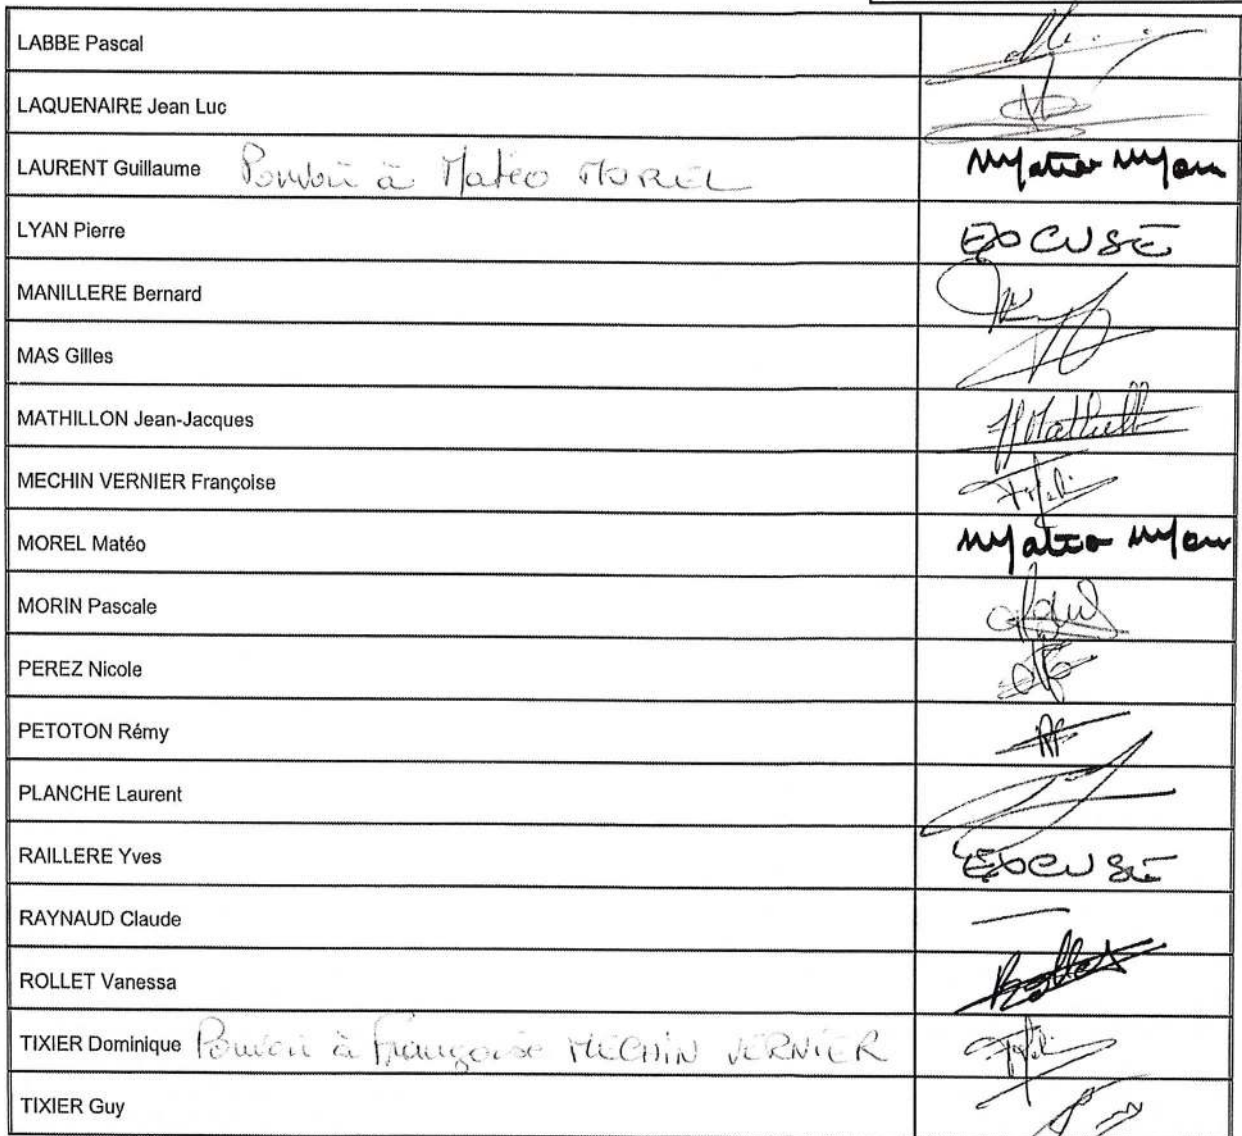 LABBE Pascal
LAQUENAIRE Jean Luc
LAURENT Guillaume Pouvoir à Matéo MOREL
LYAN Pierre EXCUSÉ
MANILLERE Bernard
MAS Gilles
MATHILLON Jean-Jacques
MECHIN VERNIER Françoise
MOREL Matéo
MORIN Pascale
PEREZ Nicole
PETOTON Rémy
PLANCHE Laurent
RAILLERE Yves EXCUSÉ
RAYNAUD Claude
ROLLET Vanessa
TIXIER Dominique Pouvoir à Françoise MECHIN VERNIER
TIXIER Guy